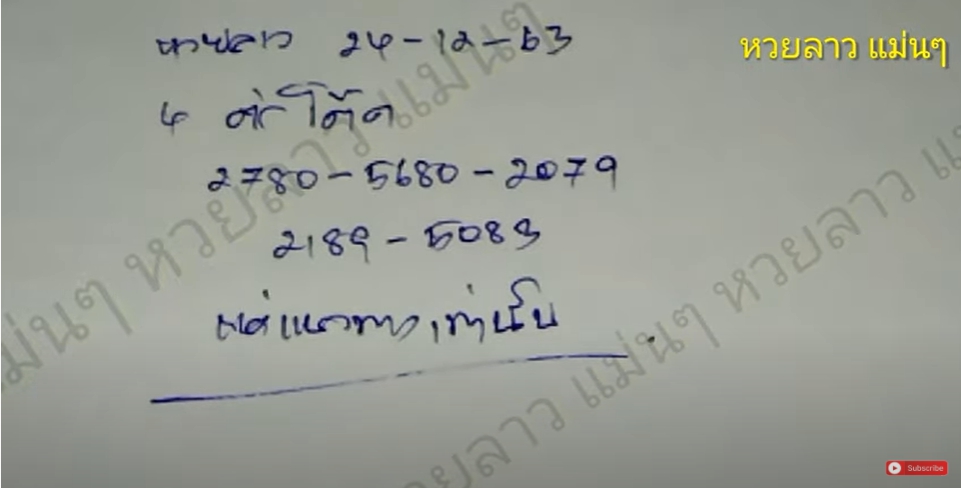 หวยลาว 24-12-63
หวยลาว แม่นๆ
4 ตัวโต๊ด
2780-5680-2079
2189-5083
แค่แนวทางเท่านั้น
แม่นๆ หวยลาว แม่นๆ
แม่นๆ หวยลาว แม่นๆ
หวยลาว แม่นๆ
Subscribe